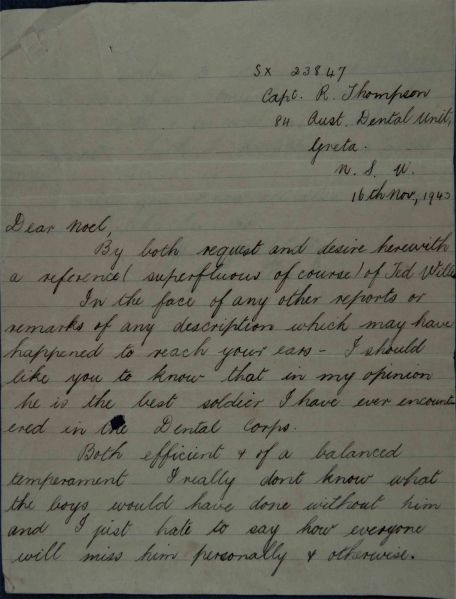 SX 23847
Capt. R. Thompson
84 Aust. Dental Unit,
Greta.
N. S. W.
16th Nov, 194
Dear Noel,
By both request and desire herewith
a reference (superfluous of course) of Ted
In the face of any other reports or
remarks of any description which may have
happened to reach your ears - I should
like you to know that in my opinion
he is the best soldier I have ever encount
ered in the Dental Corps.
Both efficient & of a balanced
temperament I really dont know what
the boys would have done without him
and I just hate to say how everyone
will miss him personally & otherwise.